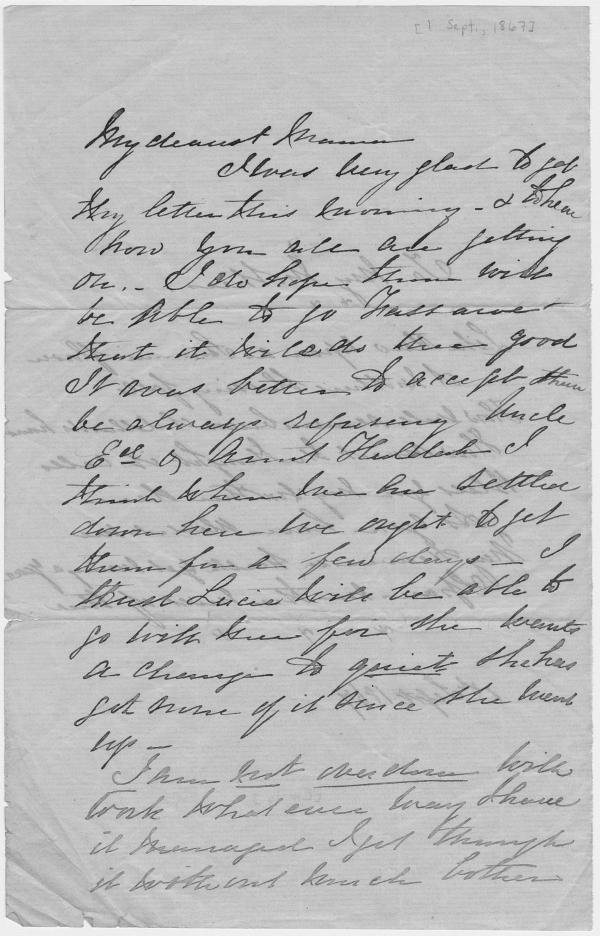 [1 Sept., 1867]
My dearest Mamma
I was very glad to get
thy letter this morning - & to hear
how you all are getting
on. - I do hope thee will
be able to go
that it will do thee good
It was better to accept than
be always refusing Uncle
Ed & Aunt Huldah I
think when we are settled
down here we ought to get
them for a few days - I
trust Lucie will be able to
go with thee for she wants
a change & quiet she has
got none of it since she went
up -
I am not overdone with
work whatever way I have
it managed I get through
it without much bother